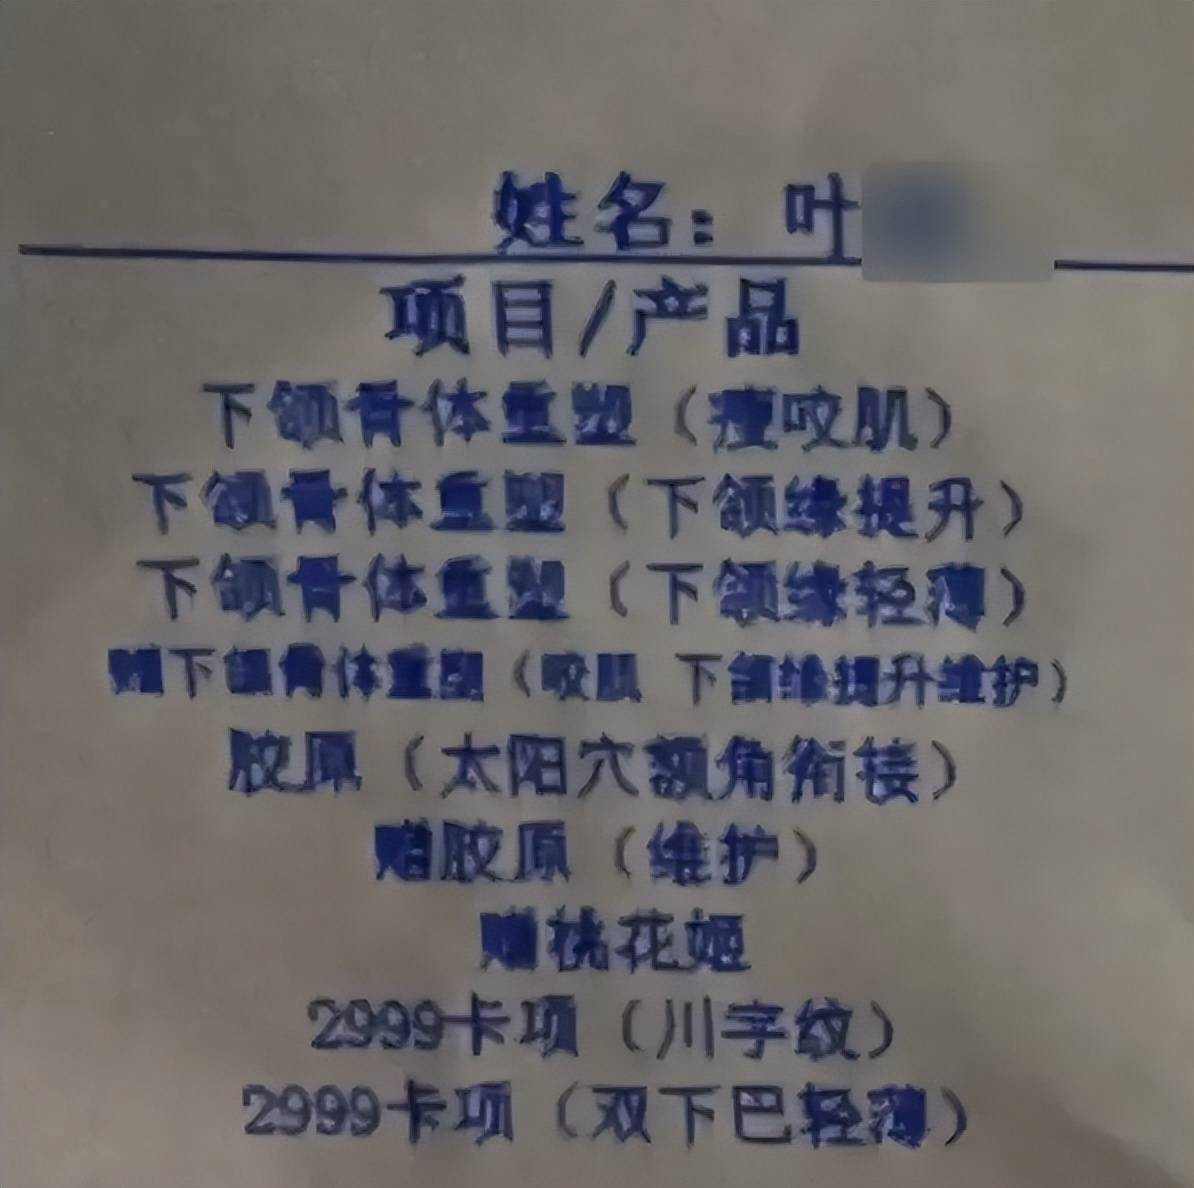 姓名：叶
项目/产品
下颌骨体重塑（瘦咬肌）
下颌骨体重塑（下颌缘提升）
下颌骨体重塑（下颌缘轻薄）
赠下颌骨体重塑（咬肌 下颌缘提升维护）
胶原（太阳穴额角衔接）
赠胶原（维护）
赠桃花姬
2999卡项（川字纹）
2999卡项（双下巴轻薄）